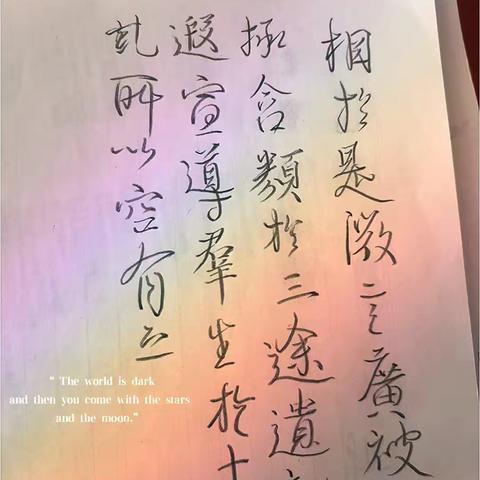 相於是微言廣被
拯含類於三途遺
遐宣導羣生於十
糺所以空有之
“ The world is dark
and then you come with the stars
and the moon.”